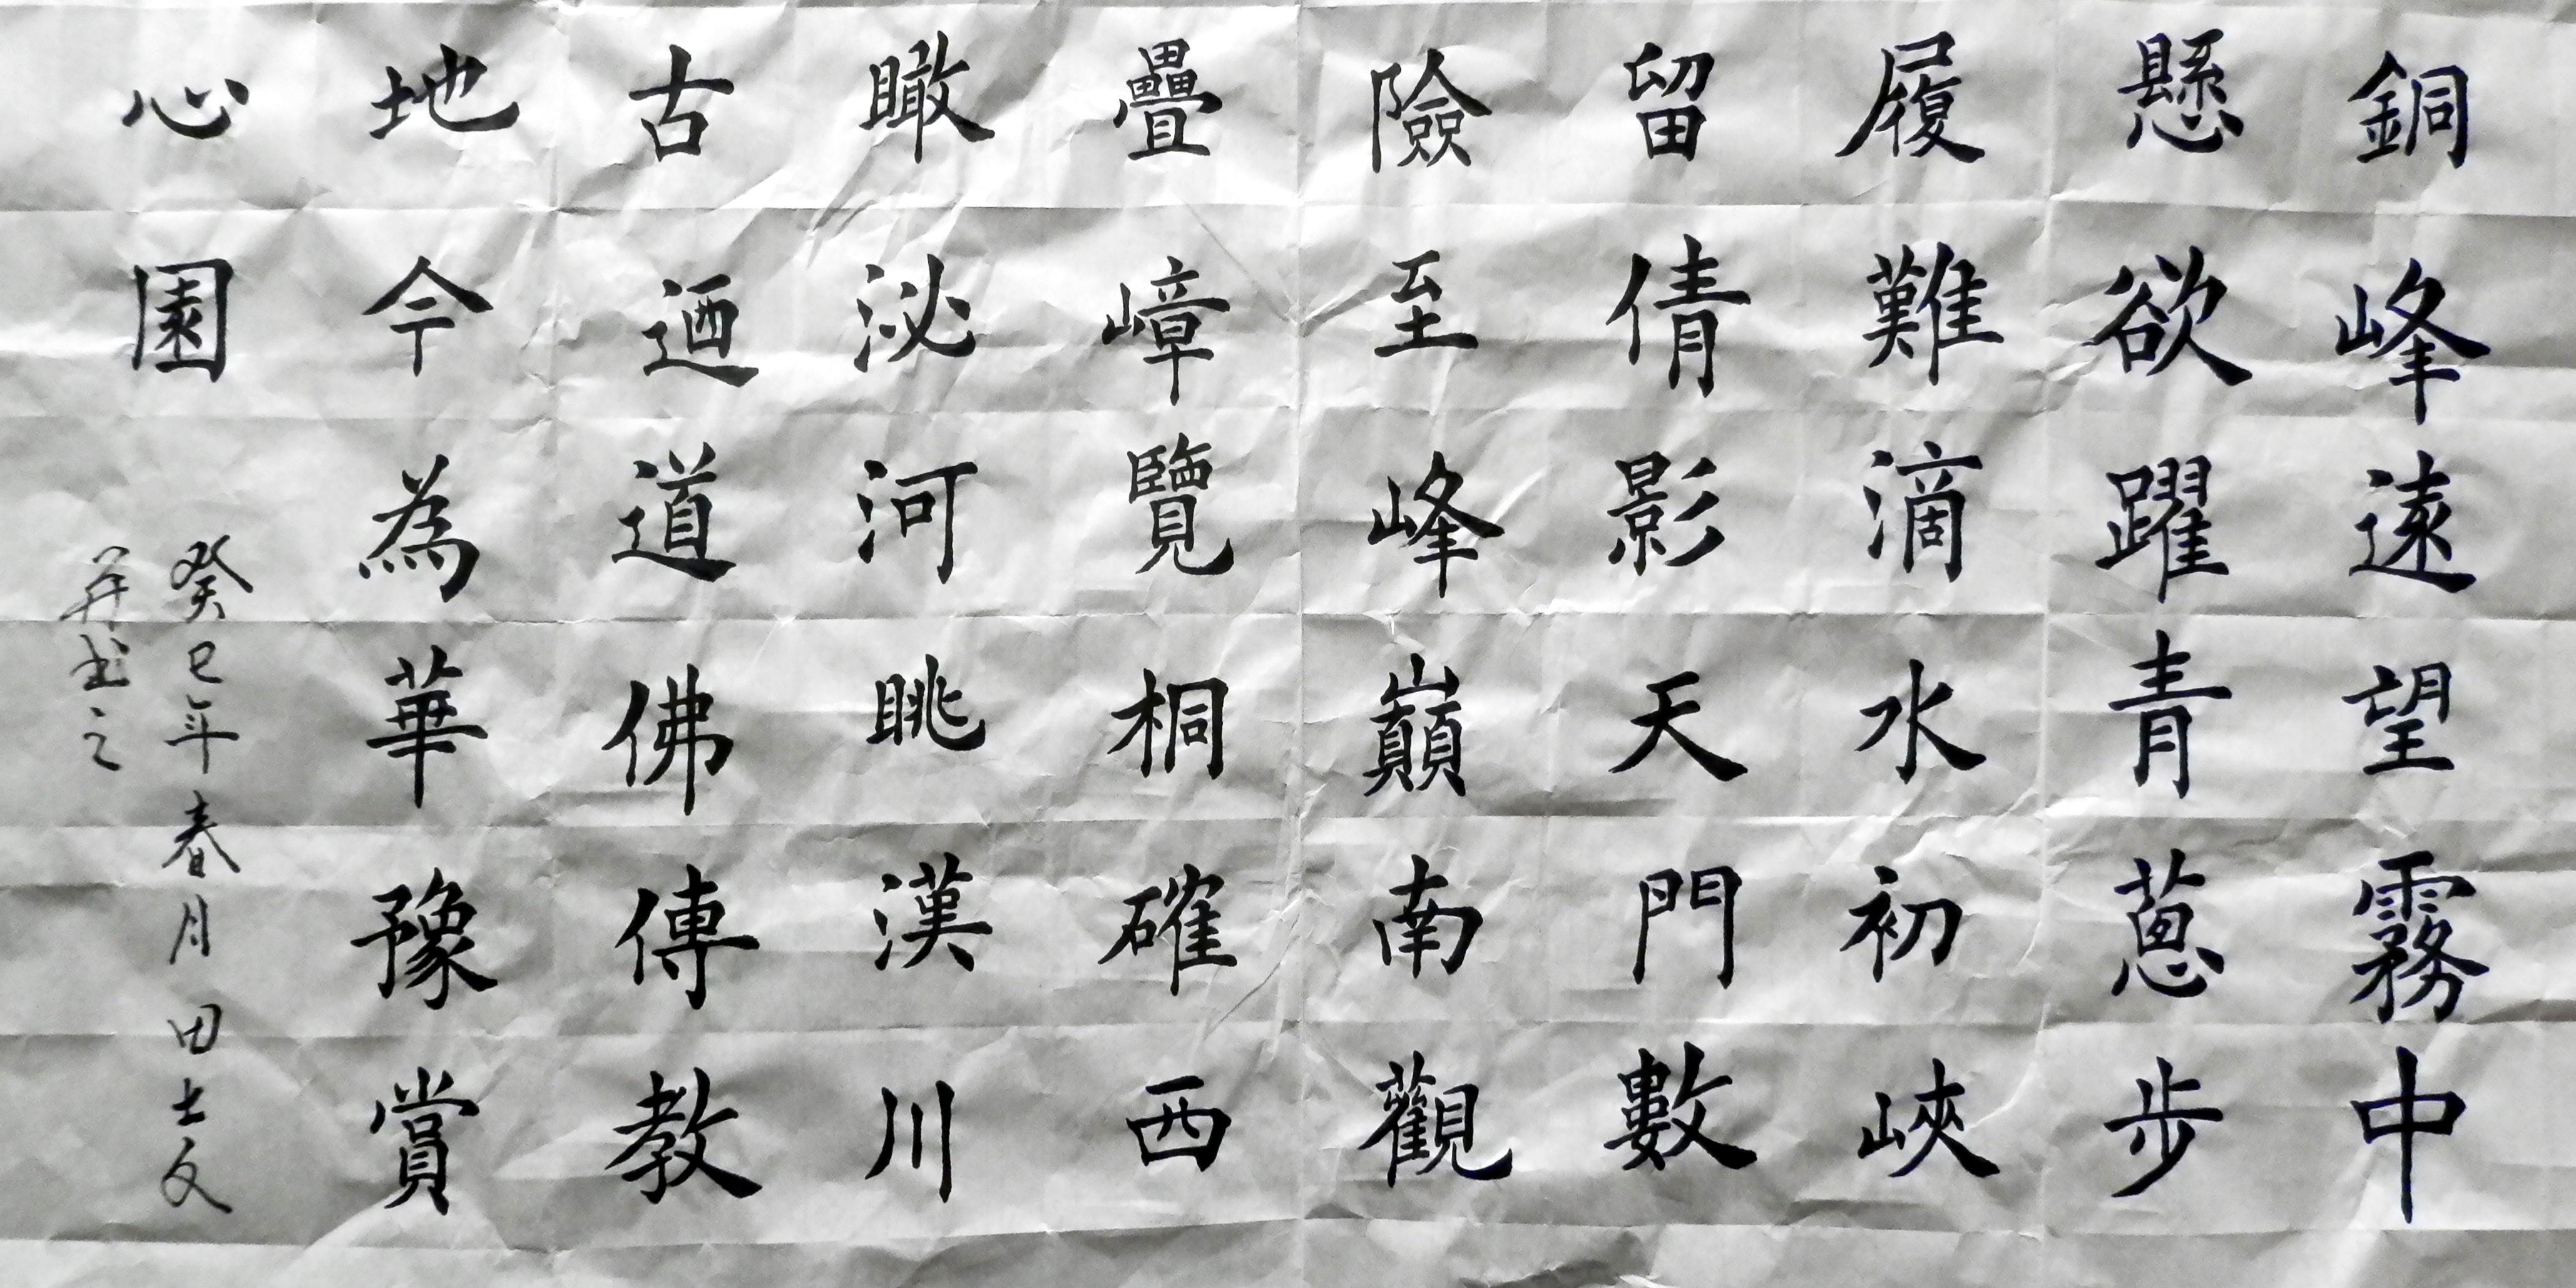 銅峰遠望霧中
懸欲躍青蔥步
履難滴水初峽
留倩影天門數
險至峰巔南觀
疊嶂覽桐確西
瞰泌河眺漢川
古迺道佛傳教
地今為華豫賞
心園
癸巳年春月田士文
并书之